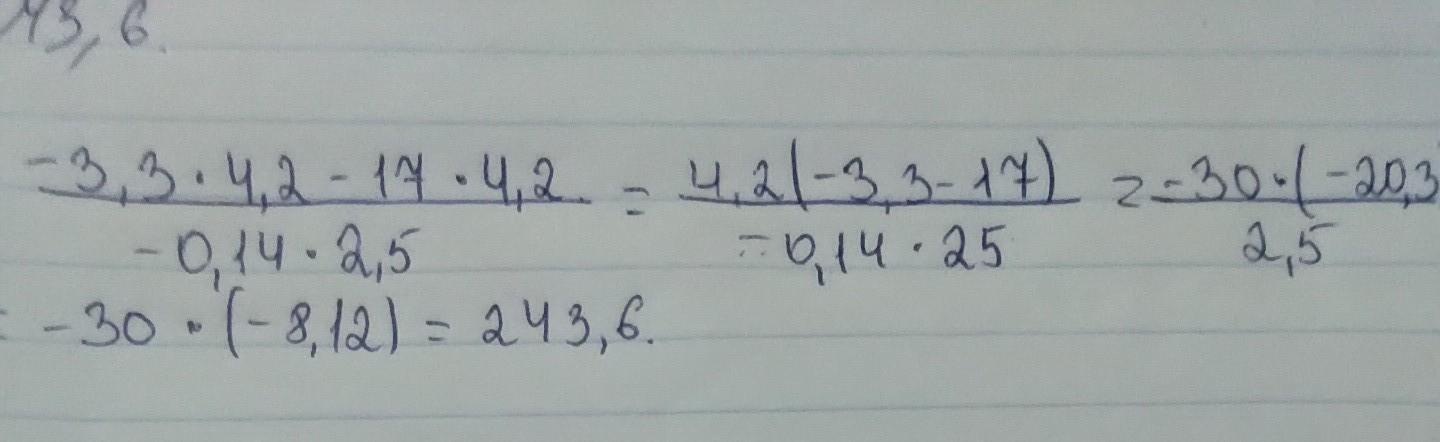 43,6.
-3,3 · 4,2 - 17 · 4,2 / -0,14 · 2,5 = 4,2(-3,3-17) / -0,14 · 25 = -30 · (-20,3 / 2,5
= -30 · (-8,12) = 243,6.